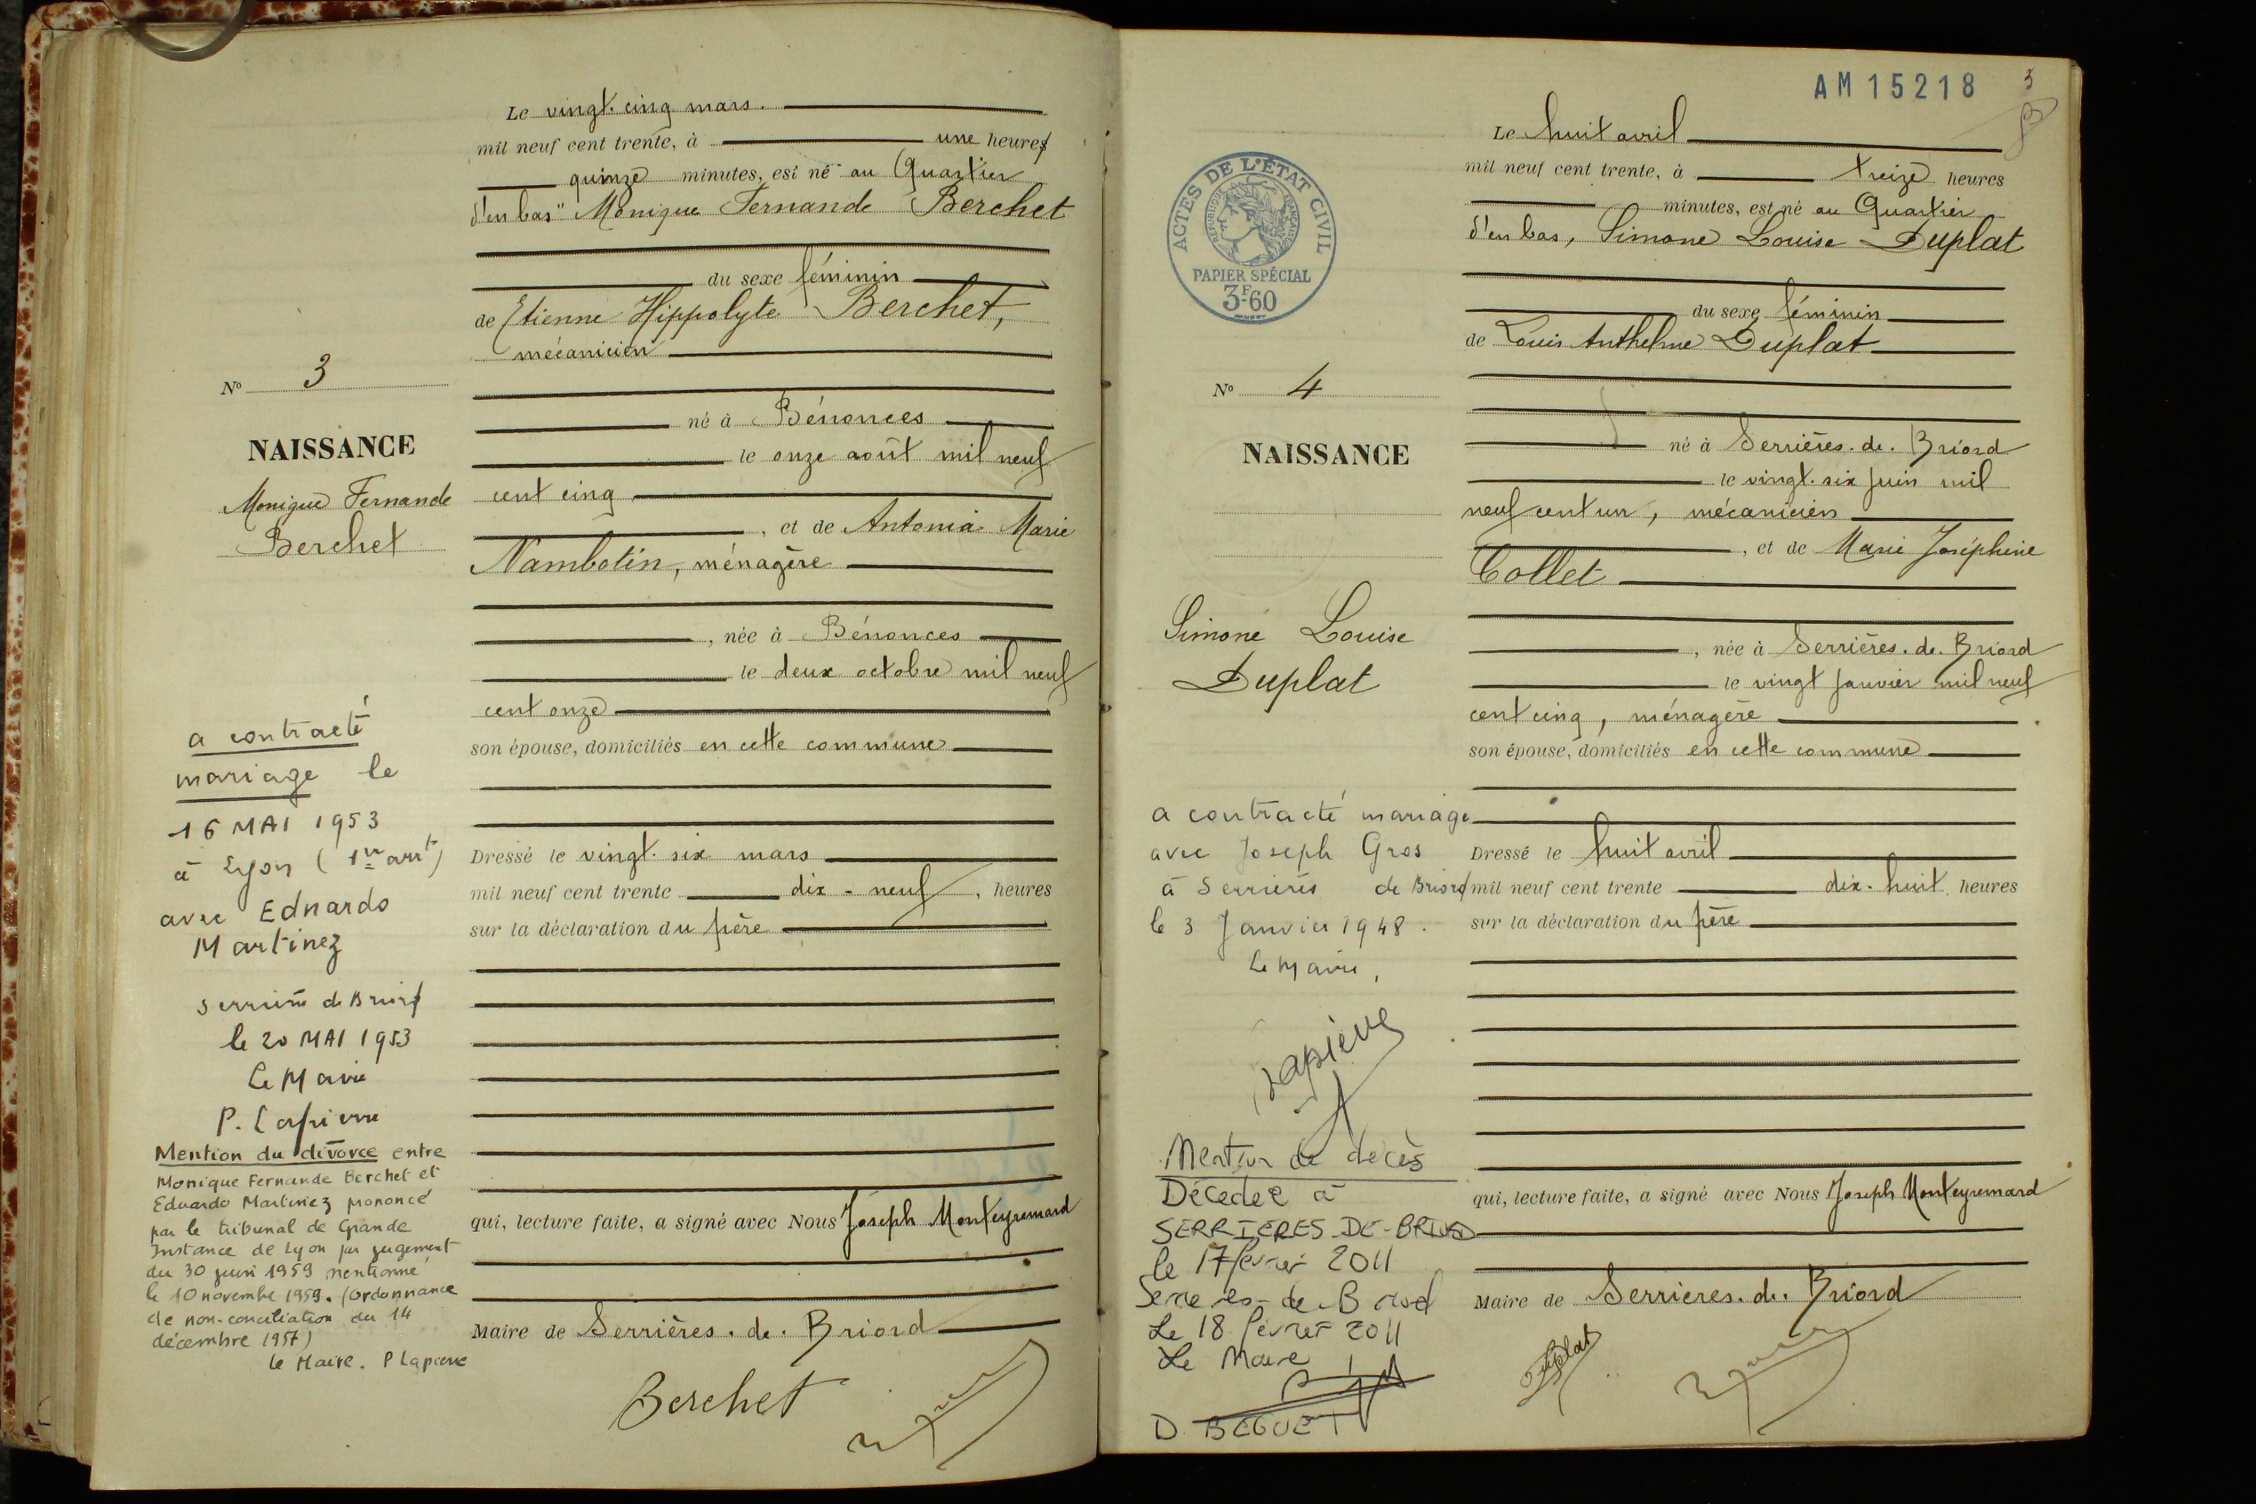 Le vingt-cinq mars.
mil neuf cent trente, à une heures
quinze minutes, est né au Quartier
d'en bas" Monique Fernande Berchet
du sexe féminin
de Etienne Hippolyte Berchet,
mécanicien
né à Bénonces
le onze août mil neuf
cent cinq
, et de Antonia Marie
Nambotin, ménagère
, née à Bénonces
le deux octobre mil neuf
cent onze
son épouse, domiciliés en cette commune
Dressé le vingt-six mars
mil neuf cent trente dix-neuf, heures
sur la déclaration du père
qui, lecture faite, a signé avec Nous Joseph Monteyremard
Maire de Serrières-de-Briord
Berchet
N° 3
NAISSANCE
Monique Fernande
Berchet
a contracté
mariage le
16 MAI 1953
à Lyon (1er arrt)
avec Eduardo
Martinez
Serrières de Briord
le 20 MAI 1953
Le Maire
P. Lapierre
Mention du divorce entre
Monique Fernande Berchet et
Eduardo Martinez prononcé
par le tribunal de Grande
Instance de Lyon par jugement
du 30 juin 1959 mentionné
le 10 novembre 1959. (ordonnance
de non-conciliation du 14
décembre 1957)
le Maire. P Lapierre
AM 15218
3
ACTES DE L'ÉTAT CIVIL
RÉPUBLIQUE FRANÇAISE
PAPIER SPÉCIAL
3F60
Le huit avril
mil neuf cent trente, à treize heures
minutes, est né au Quartier
d'en bas, Simone Louise Duplat
du sexe féminin
de Louis Anthelme Duplat
né à Serrières-de-Briord
le vingt-six juin mil
neuf cent un, mécanicien
, et de Marie Joséphine
Collet
, née à Serrières-de-Briord
le vingt janvier mil neuf
cent cinq, ménagère
son épouse, domiciliés en cette commune
Dressé le huit avril
mil neuf cent trente dix-huit heures
sur la déclaration du père
qui, lecture faite, a signé avec Nous Joseph Monteyremard
Maire de Serrieres-de-Briord
Duplat
N° 4
NAISSANCE
Simone Louise
Duplat
a contracté mariage
avec Joseph Gros
à Serrières de Briord
le 3 Janvier 1948.
Le Maire,
Lapierre
Mention de décès
Décédée à
SERRIERES-DE-BRIORD
le 17 février 2011
Serrières-de-Briord
Le 18 février 2011
Le Maire
D. BEGUET